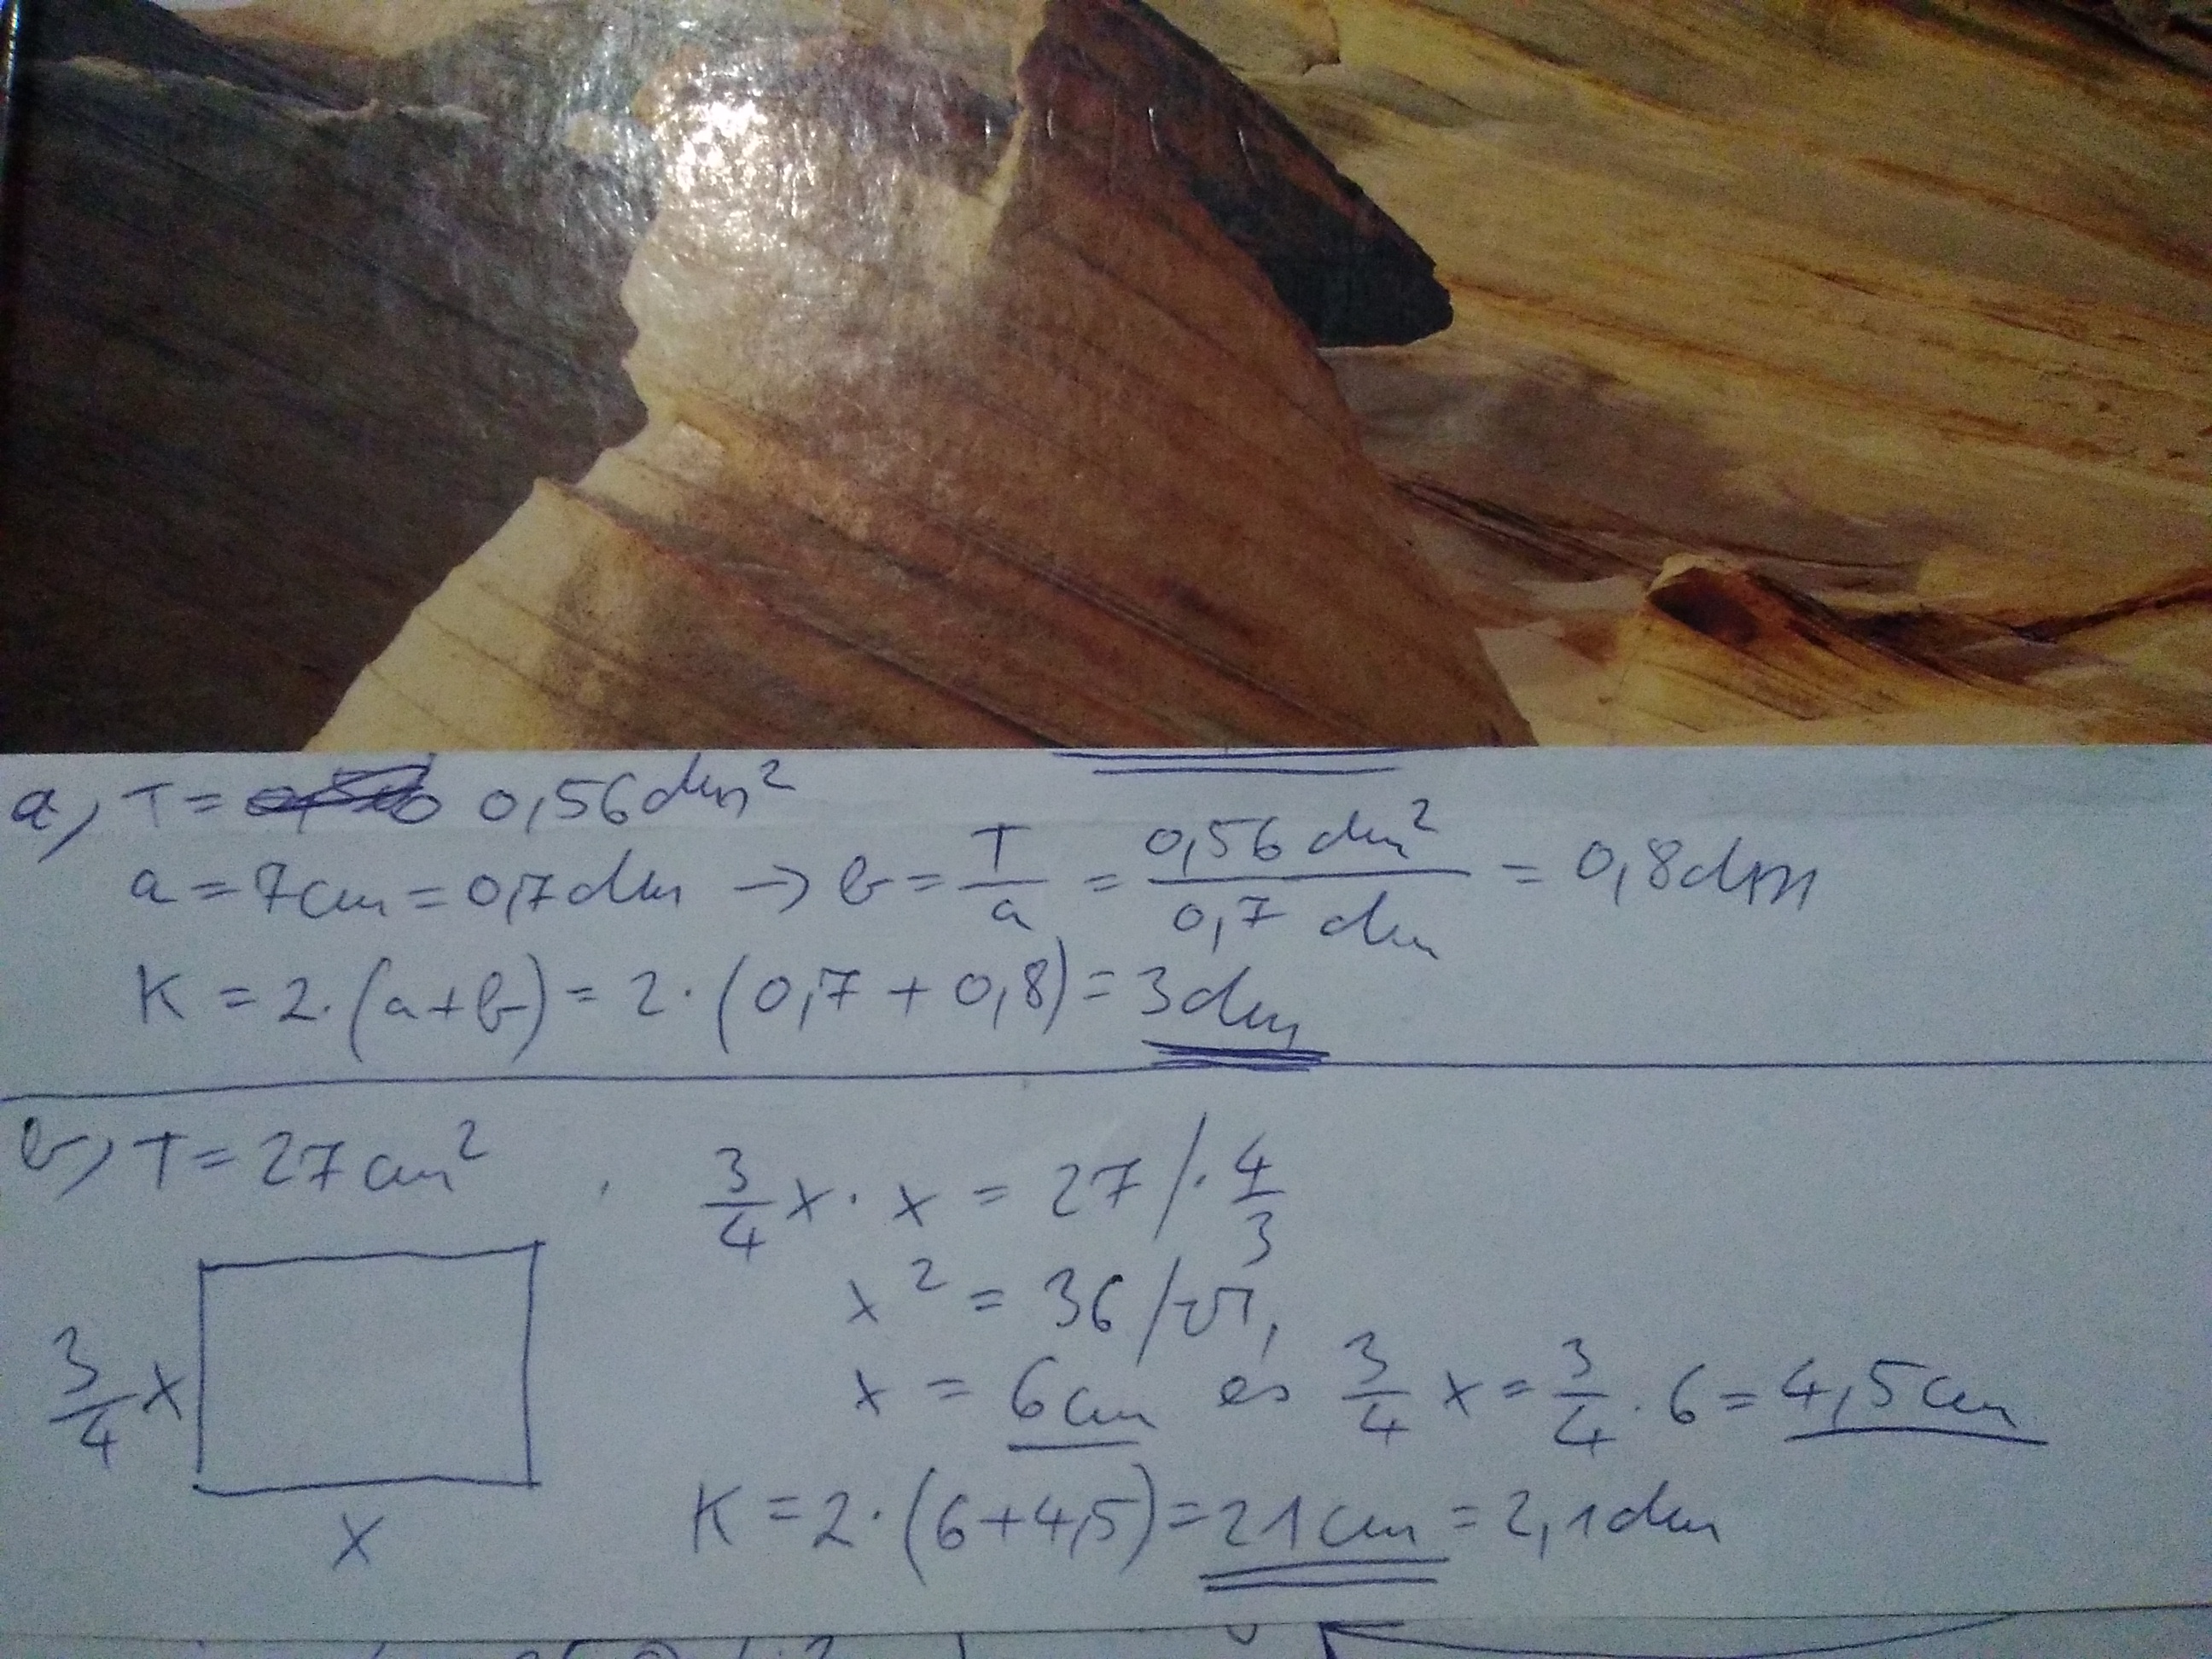 a, T = 0,56 dm²
a = 7cm = 0,7dm → b = T/a = 0,56 dm²/0,7 dm = 0,8dm
K = 2·(a+b) = 2·(0,7+0,8) = 3dm
b, T = 27 cm²
3/4 x · x = 27 /· 4/3
x² = 36 /√,
3/4 x
x = 6cm és 3/4 x = 3/4 · 6 = 4,5cm
x
K = 2·(6+4,5) = 21cm = 2,1dm